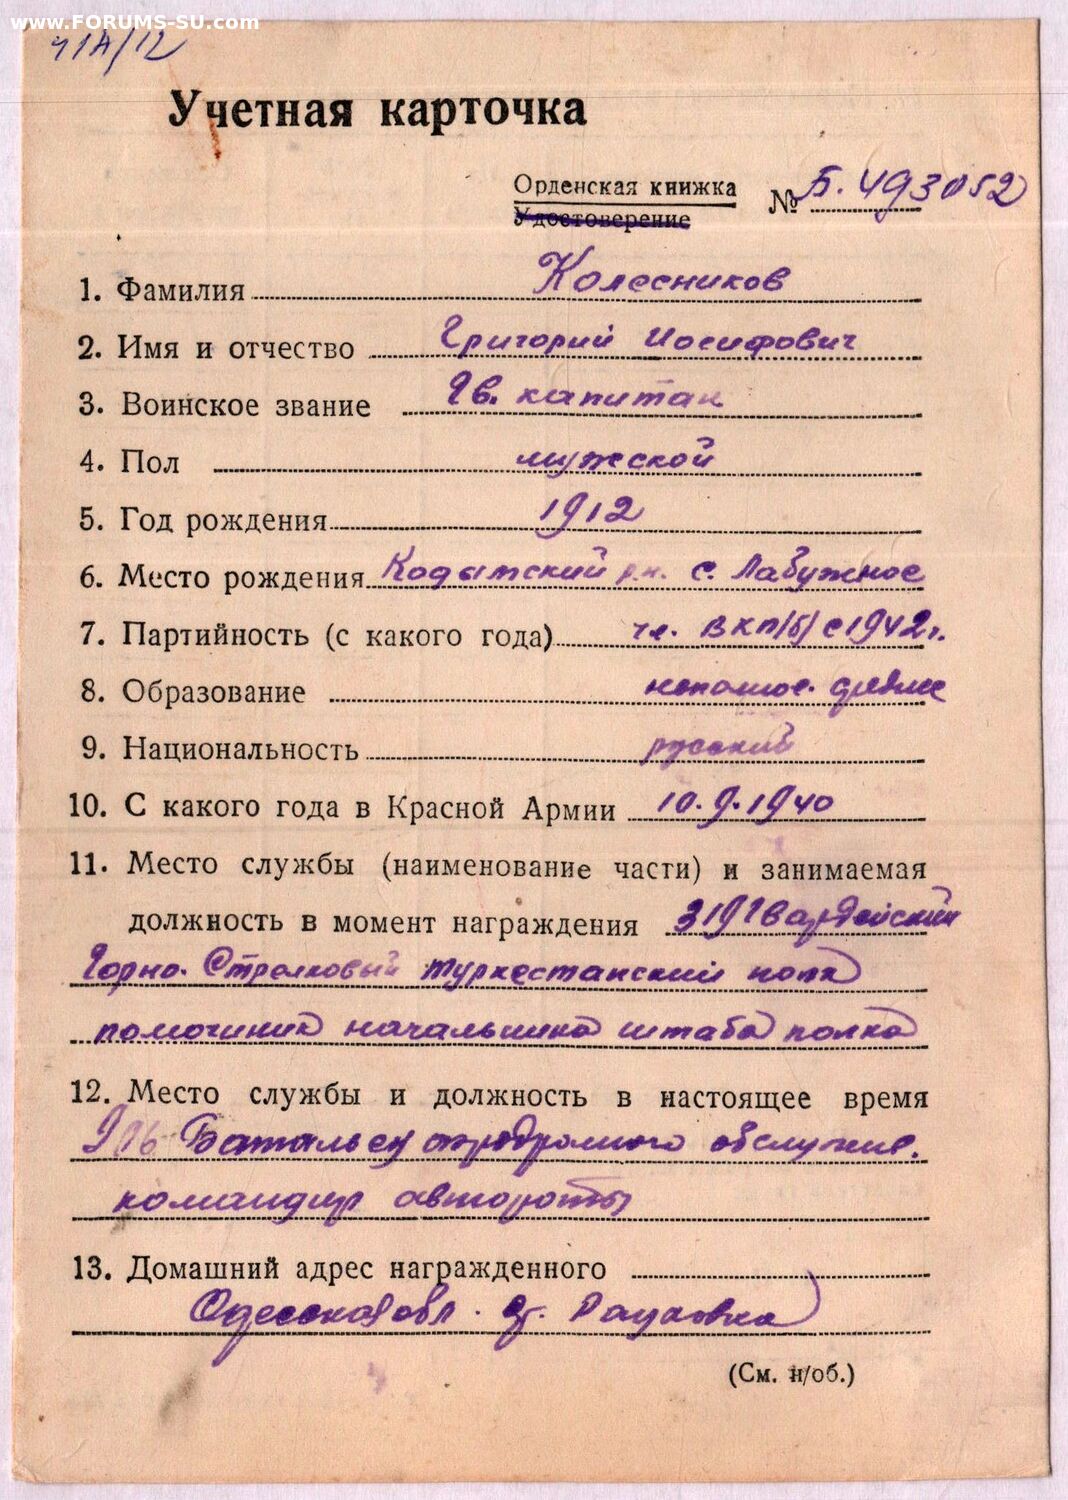 www.FORUMS-SU.com
Учетная карточка
Орденская книжка
Удостоверение № Б. 493052
1. Фамилия Колесников
2. Имя и отчество Григорий Иосифович
3. Воинское звание Гв. капитан
4. Пол мужской
5. Год рождения 1912
6. Место рождения Кодымский р.н. с. Лабужное
7. Партийность (с какого года) чл. ВКП/б/ с 1942 г.
8. Образование неполное средне
9. Национальность русский
10. С какого года в Красной Армии 10.9.1940
11. Место службы (наименование части) и занимаемая
должность в момент награждения 319 Гвардейский
Горно. Стрелковый Туркестанский полк
помочиник начальника штаба полка
12. Место службы и должность в настоящее время
Батальон аэродромного обслужив.
командир автороты
13. Домашний адрес награжденного
Одесская обл.
(См. н/об.)